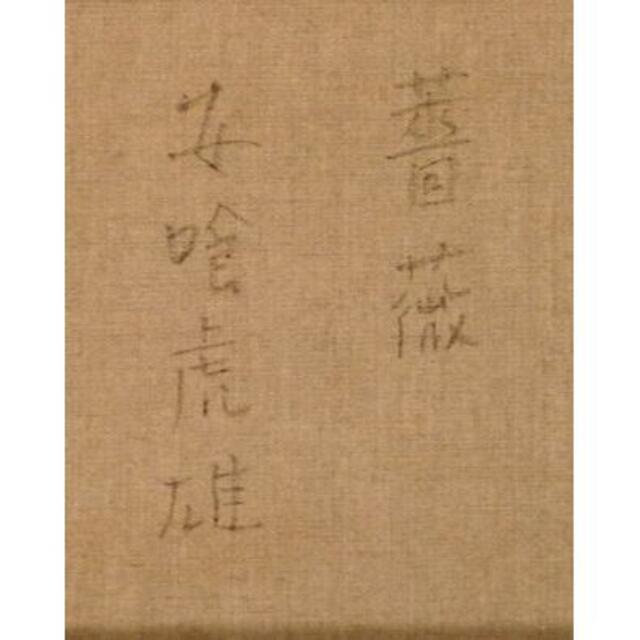 薔薇
安啥虎雄